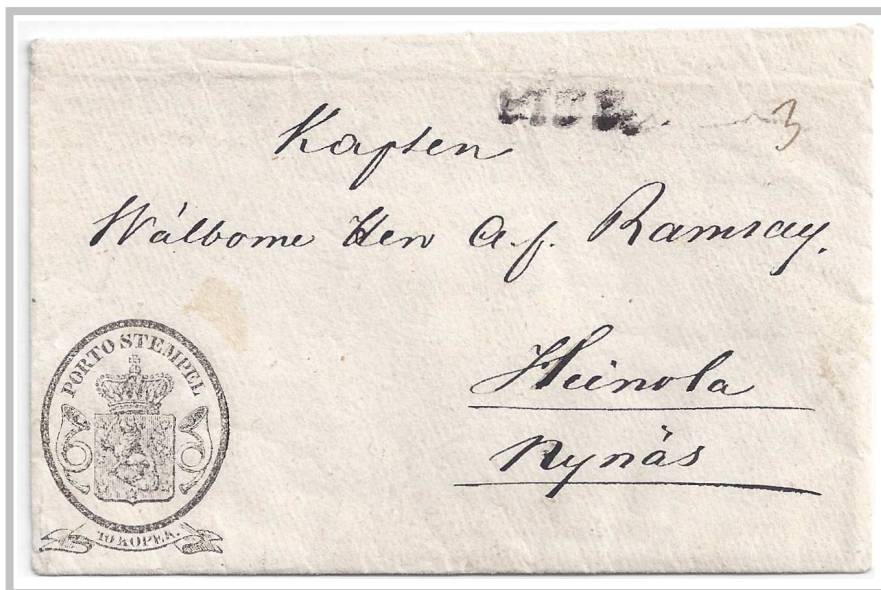 3
Kapten
Wälborne Herr A. f. Ramsay.
Heinola
Nynäs
PORTO STEMPEL
10 KOPEK.